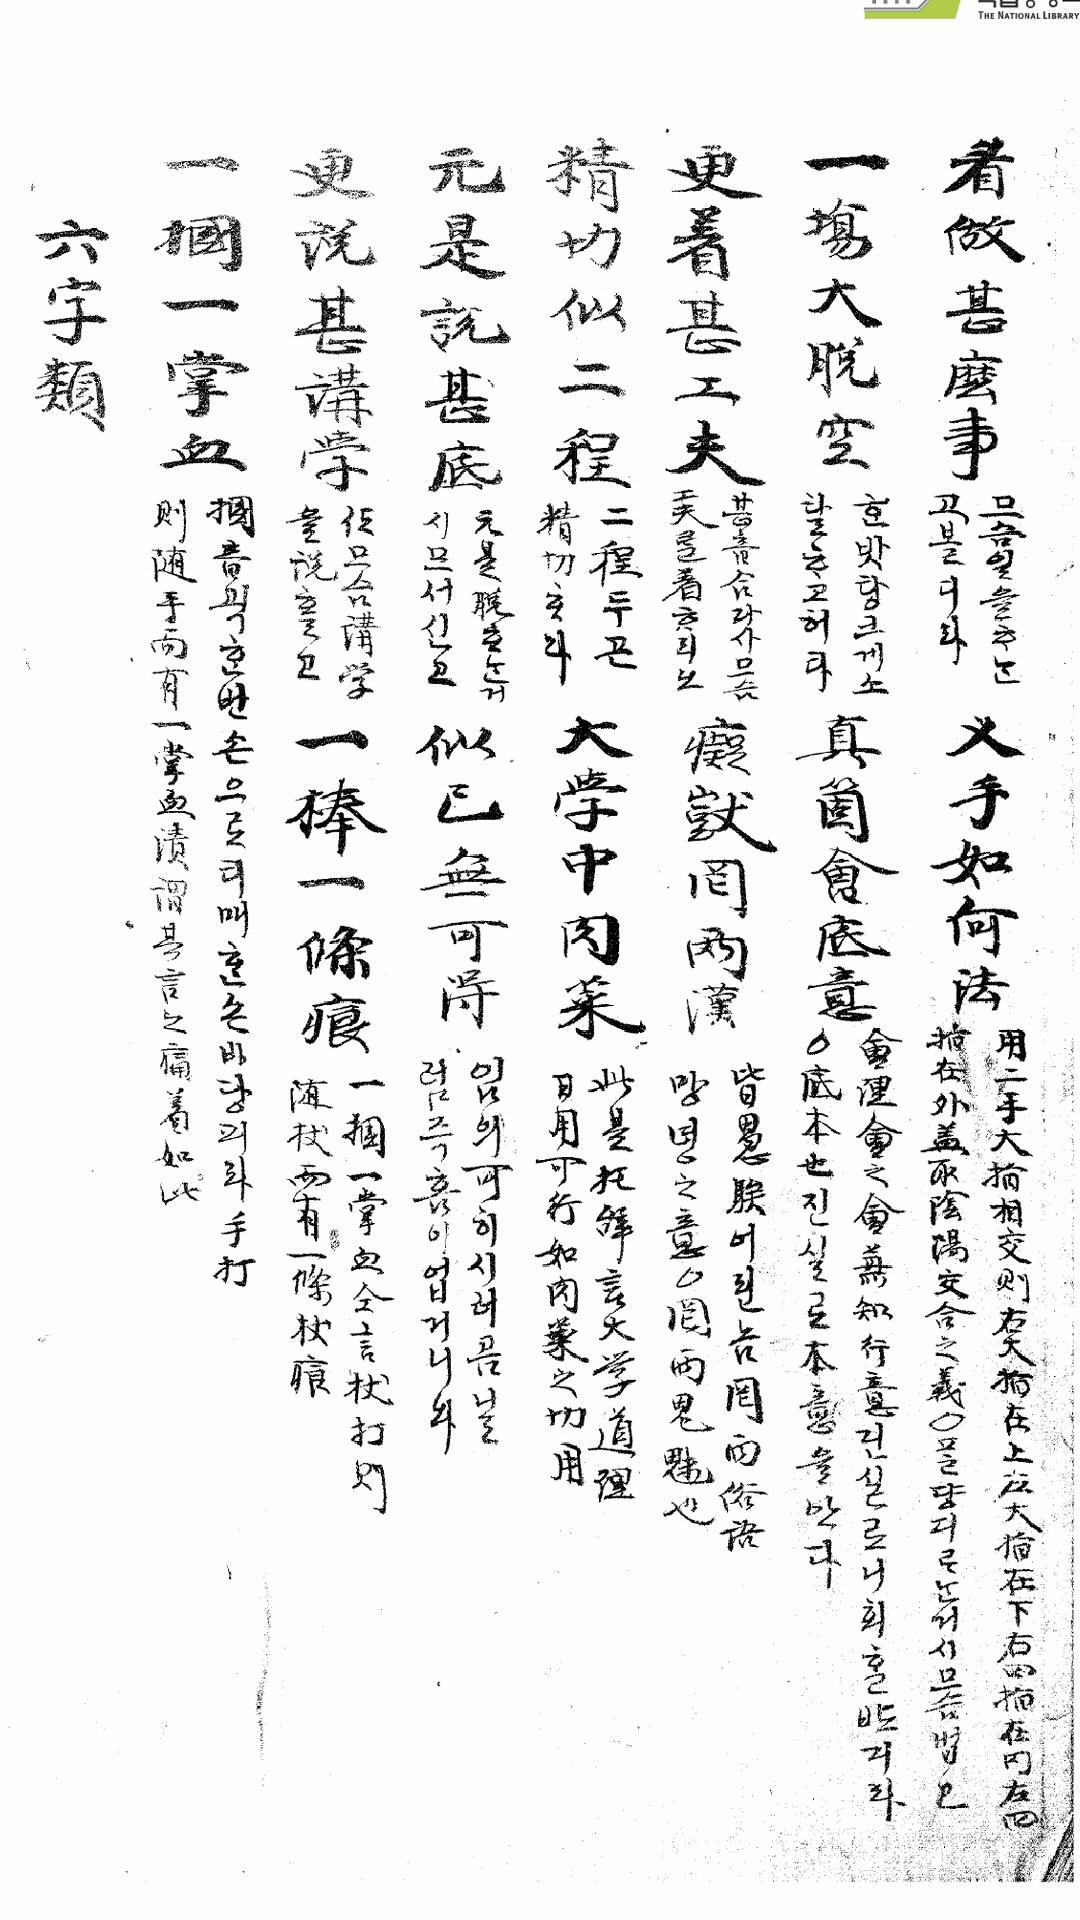 THE NATIONAL LIBRARY
看做甚麽事 므슴일을ᄒᆞᄂᆞᆫ
고볼디라
叉手如何法 用二手大指相交則右大指在上左大指在下右四指在內左四
指在外盖取陰陽交合之義○
一塲大脫空 ᄒᆞᆫ밧탕크게소
탈ᄒᆞ고허다
眞箇會底意 會理會之會兼知行意진실로니회ᄒᆞᆯ
○底本也진실로本意을안다
更着甚工夫 甚音合다사므슴
夫를着ᄒᆞ리노
癡獃罔兩漢 皆愚騃어린ᄂᆞᆷ罔兩俗語
망녕之意○罔兩鬼魅也
精切似二程 二程두곤
精切ᄒᆞ다
大學中肉菜 此是托解言大学道理
日用可行如肉菜之切用
元是說甚底 元是說ᄒᆞᄂᆞᆫ거
시므서신고
似已無可得 임의可히시러곰날
럼즉홈이업거니와
更說甚講学 你므슴講学
을說ᄒᆞᆯ고
一棒一條痕 一摑一掌血仝言杖打則
随杖而有一條杖痕
一摑一掌血 摑音괵ᄒᆞᆫ번손으로티매ᄒᆞᆫ손바당피라手打
則随手而有一掌血漬謂其言之痛着如此
六字類